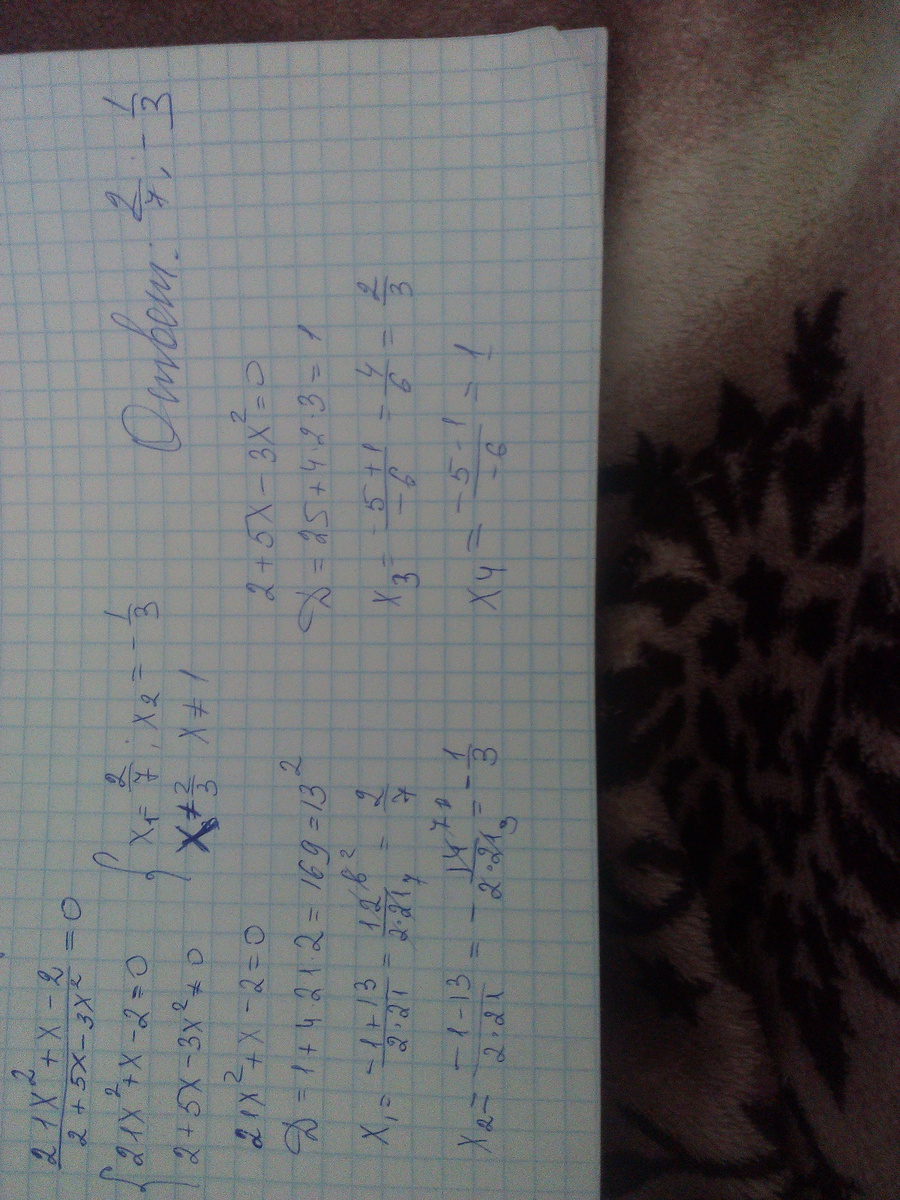 (21x² + x - 2)/(2 + 5x - 3x²) = 0
{ 21x² + x - 2 = 0
2 + 5x - 3x² ≠ 0
{ x₁ = 2/7; x₂ = -1/3
x ≠ 2/3 x ≠ 1
Ответ: 2/7; -1/3
21x² + x - 2 = 0
D = 1 + 4 21·2 = 169 = 13²
x₁ = (-1 + 13)/(2·21) = 12/(2·21) = 2/7
x₂ = (-1 - 13)/(2·21) = -14/(2·21) = -1/3
2 + 5x - 3x² = 0
D = 25 + 4·2·3 = 1
x₃ = (-5 + 1)/(-6) = 4/6 = 2/3
x₄ = (-5 - 1)/(-6) = 1